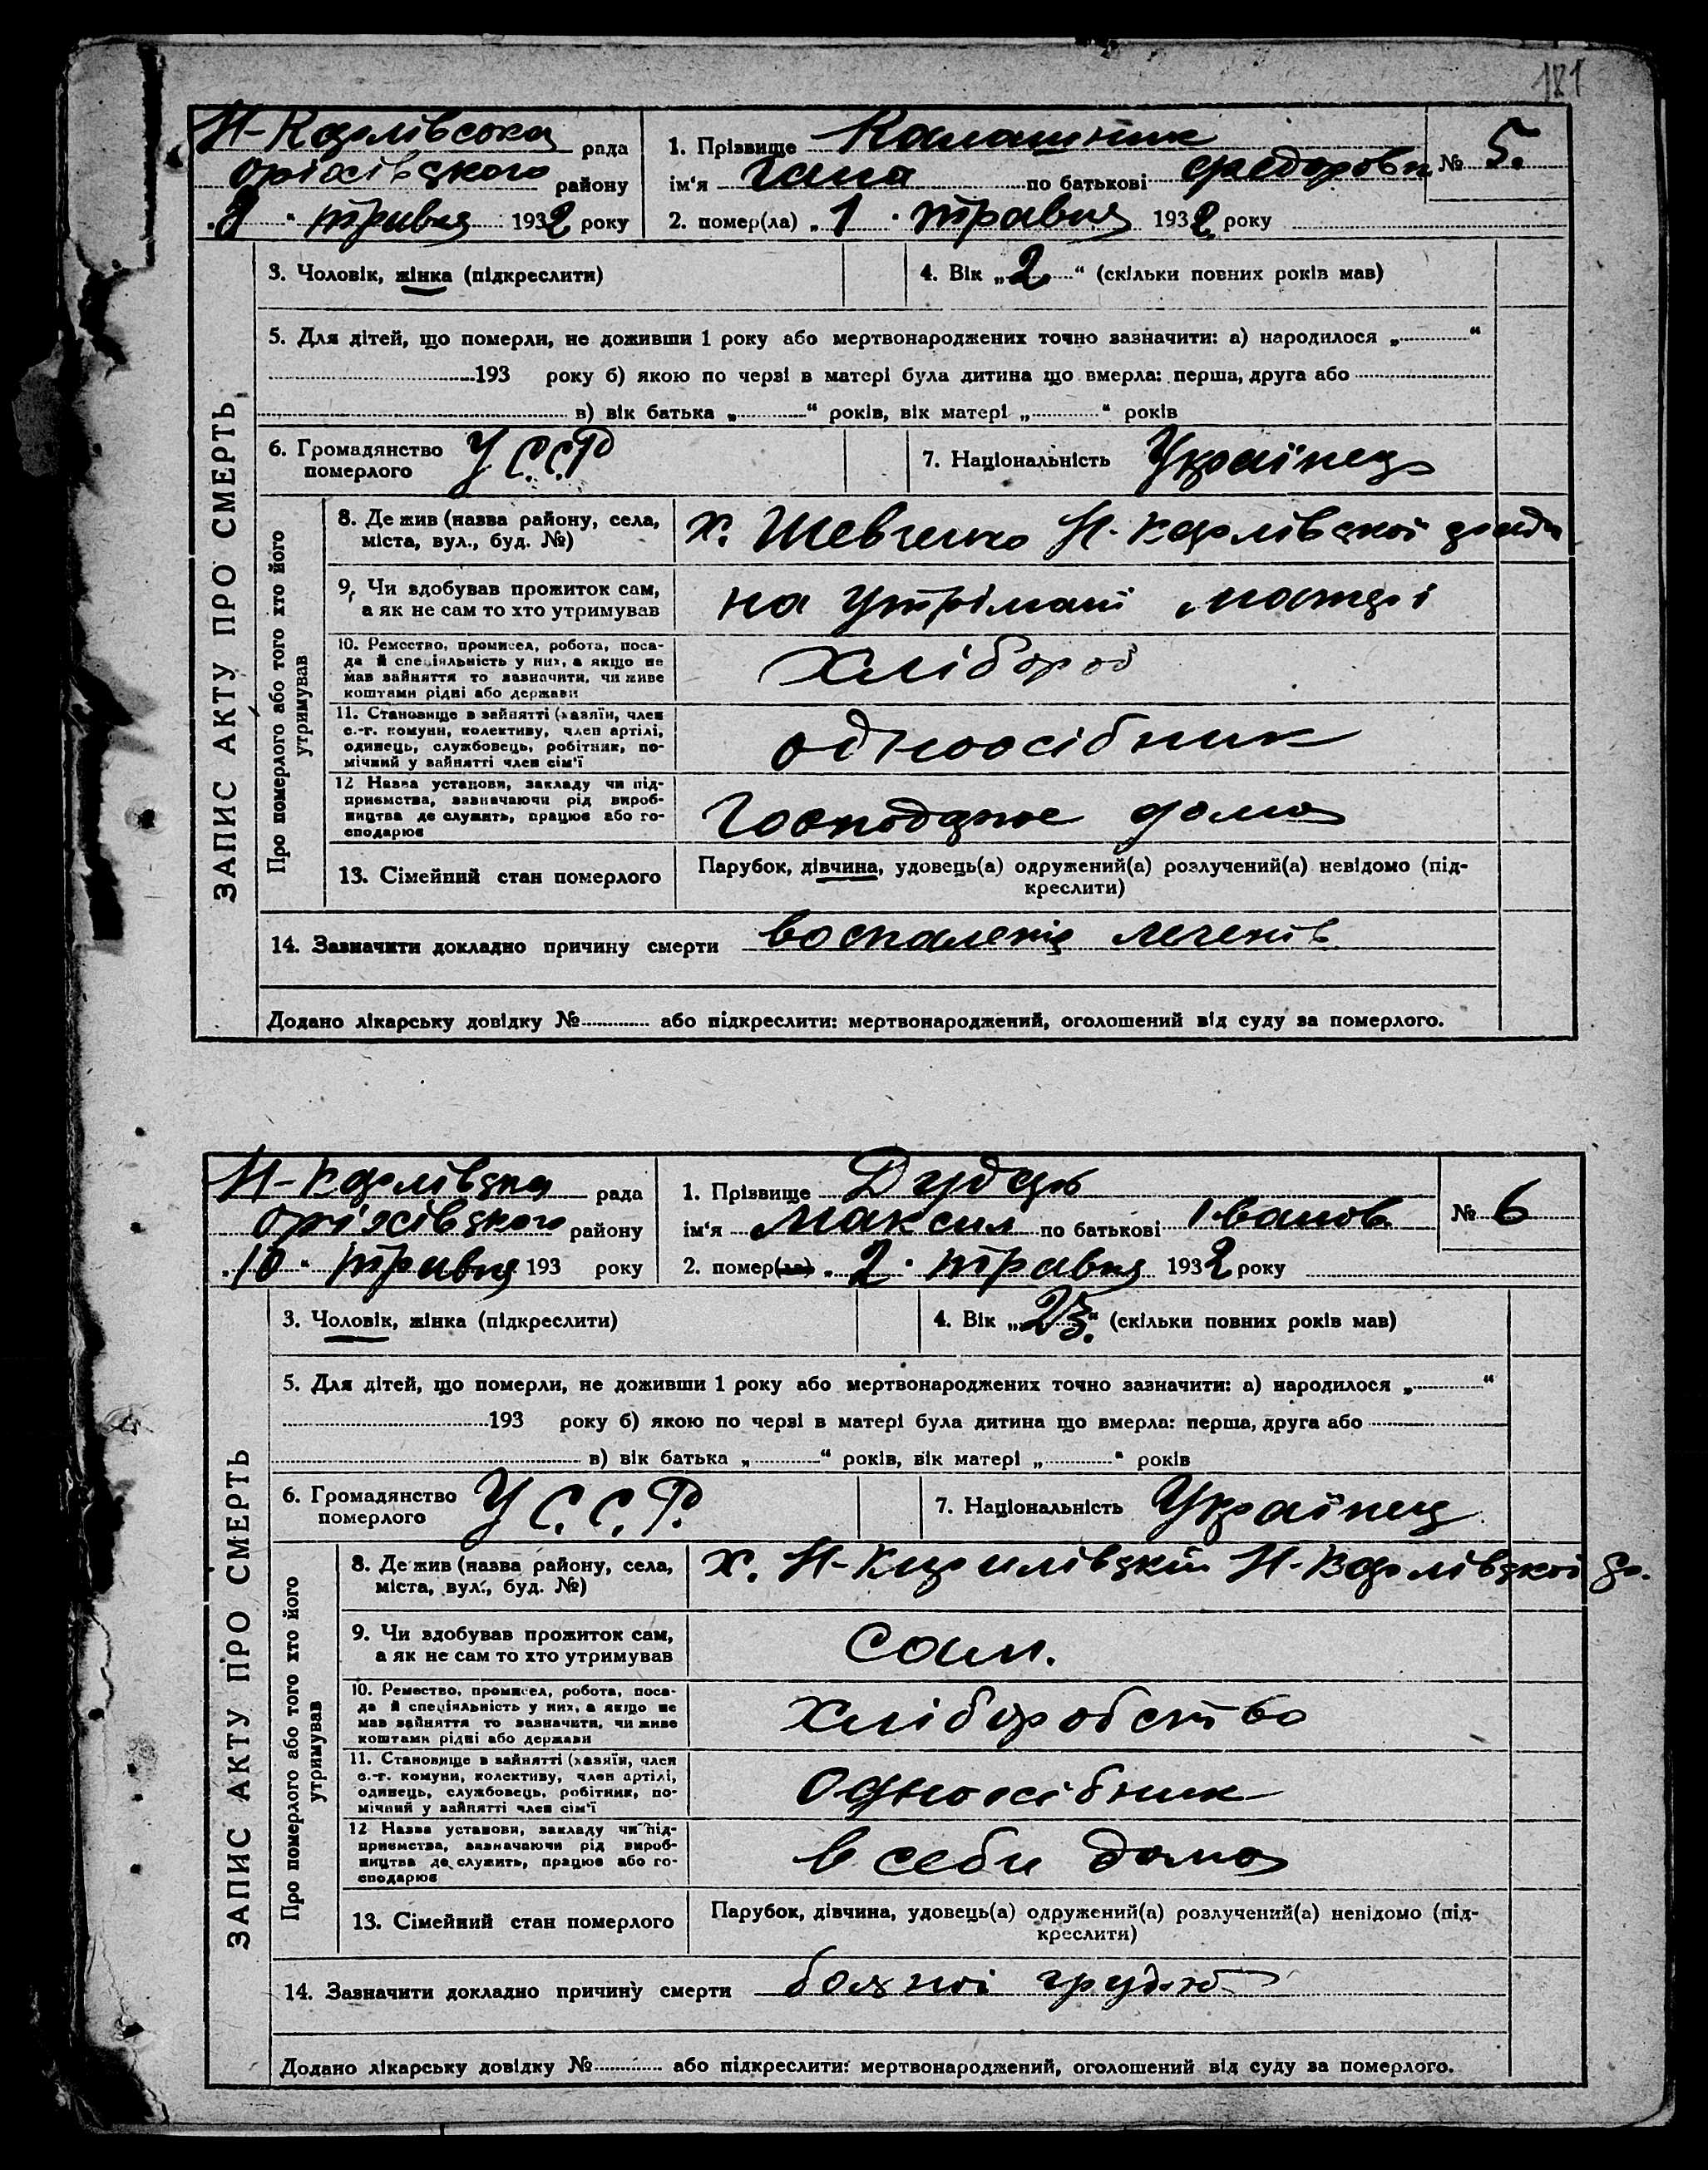 181
Н-Карлівська рада
Оріхівського району
8 " травня 1932 року
1. Прізвище Калашник
ім'я Гана по батькові Федоровн
№ 5.
2. помер(ла) „ 1 " травня 1932 року
ЗАПИС АКТУ ПРО СМЕРТЬ
3. Чоловік, жінка (підкреслити)
4. Вік „ 2 “ (скільки повних років мав)
5. Для дітей, що померли, не доживши 1 року або мертвонароджених точно зазначити: а) народилося „ “
193 року б) якою по черзі в матері була дитина що вмерла: перша, друга або
в) вік батька „ “ років, вік матері „ “ років
6. Громадянство
померлого
У С.С.Р
7. Національність Українец
Про померлого або того хто його
утримував
8. Де жив (назва району, села,
міста, вул., буд. №)
х. Шевченко Н-Карлівской ради
9, Чи здобував прожиток сам,
а як не сам то хто утримував
на утрімані матері
10. Ремество, промисел, робота, поса-
да й спеціяльність у них, а якщо не
мав зайняття то зазначити, чи живе
коштами рідні або держави
Хлібороб
11. Становище в зайнятті (хазяїн, член
с.-г. комуни, колективу, член артілі,
одинець, службовець, робітник, по-
мічний у зайнятті член сім'ї
одноосібник
12 Назва установи, закладу чи під-
приємства, зазначаючи рід вироб-
ництва де служить, працює або го-
сподарює
Господарює дома
13. Сімейний стан померлого
Парубок, дівчина, удовець(а) одружений(а) розлучений(а) невідомо (під-
креслити)
14. Зазначити докладно причину смерти воспаленіе легенів
Додано лікарську довідку № або підкреслити: мертвонароджений, оголошений від суду за померлого.
Н-Карлівська рада
Оріхівского району
„ 10 " травня 193 року
1. Прізвище
ім'я Максим по батькові Іванов
№ 6
2. помер(ла) „ 2 " травня 1932 року
ЗАПИС АКТУ ПРО СМЕРТЬ
3. Чоловік, жінка (підкреслити)
4. Вік „ “ (скільки повних років мав)
5. Для дітей, що померли, не доживши 1 року або мертвонароджених точно зазначити: а) народилося „ “
193 року б) якою по черзі в матері була дитина що вмерла: перша, друга або
в) вік батька „ “ років, вік матері „ “ років
6. Громадянство
померлого
У С.С.Р.
7. Національність Українец
Про померлого або того хто його
утримував
8. Де жив (назва району, села,
міста, вул., буд. №)
х. Н-Кирилівський Н-Карлівской
9. Чи здобував прожиток сам,
а як не сам то хто утримував
Сам.
10. Ремество, промисел, робота, поса-
да й спеціяльність у них, а якщо не
мав зайняття то зазначити, чи живе
коштами рідні або держави
Хліборобство
11. Становище в зайнятті (хазяїн, член
с.-г. комуни, колективу, член артілі,
одинець, службовець, робітник, по-
мічний у зайнятті член сім'ї
Одноосібник
12 Назва установи, закладу чи під-
приємства, зазначаючи рід вироб-
ництва де служить, працює або го-
сподарює
в себи дома
13. Сімейний стан померлого
Парубок, дівчина, удовець(а) одружений(а) розлучений(а) невідомо (під-
креслити)
14. Зазначити докладно причину смерти
Додано лікарську довідку № або підкреслити: мертвонароджений, оголошений від суду за померлого.